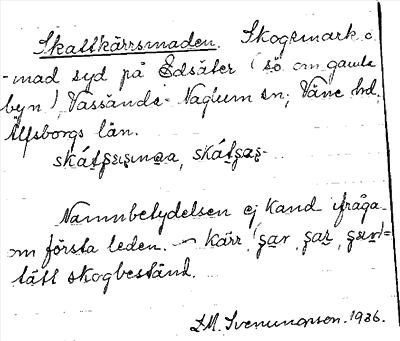 Skattkärrsmaden. Skogsmark o.
-mad syd på Edsäter (sö om gamla
byn), Vassända-Naglum sn; Väne hd,
Älfsborgs län.
Namnbetydelsen ej känd ifråga
om första leden. — Kärr
tätt skogbestånd.
L.M. Svenungsson. 1936.